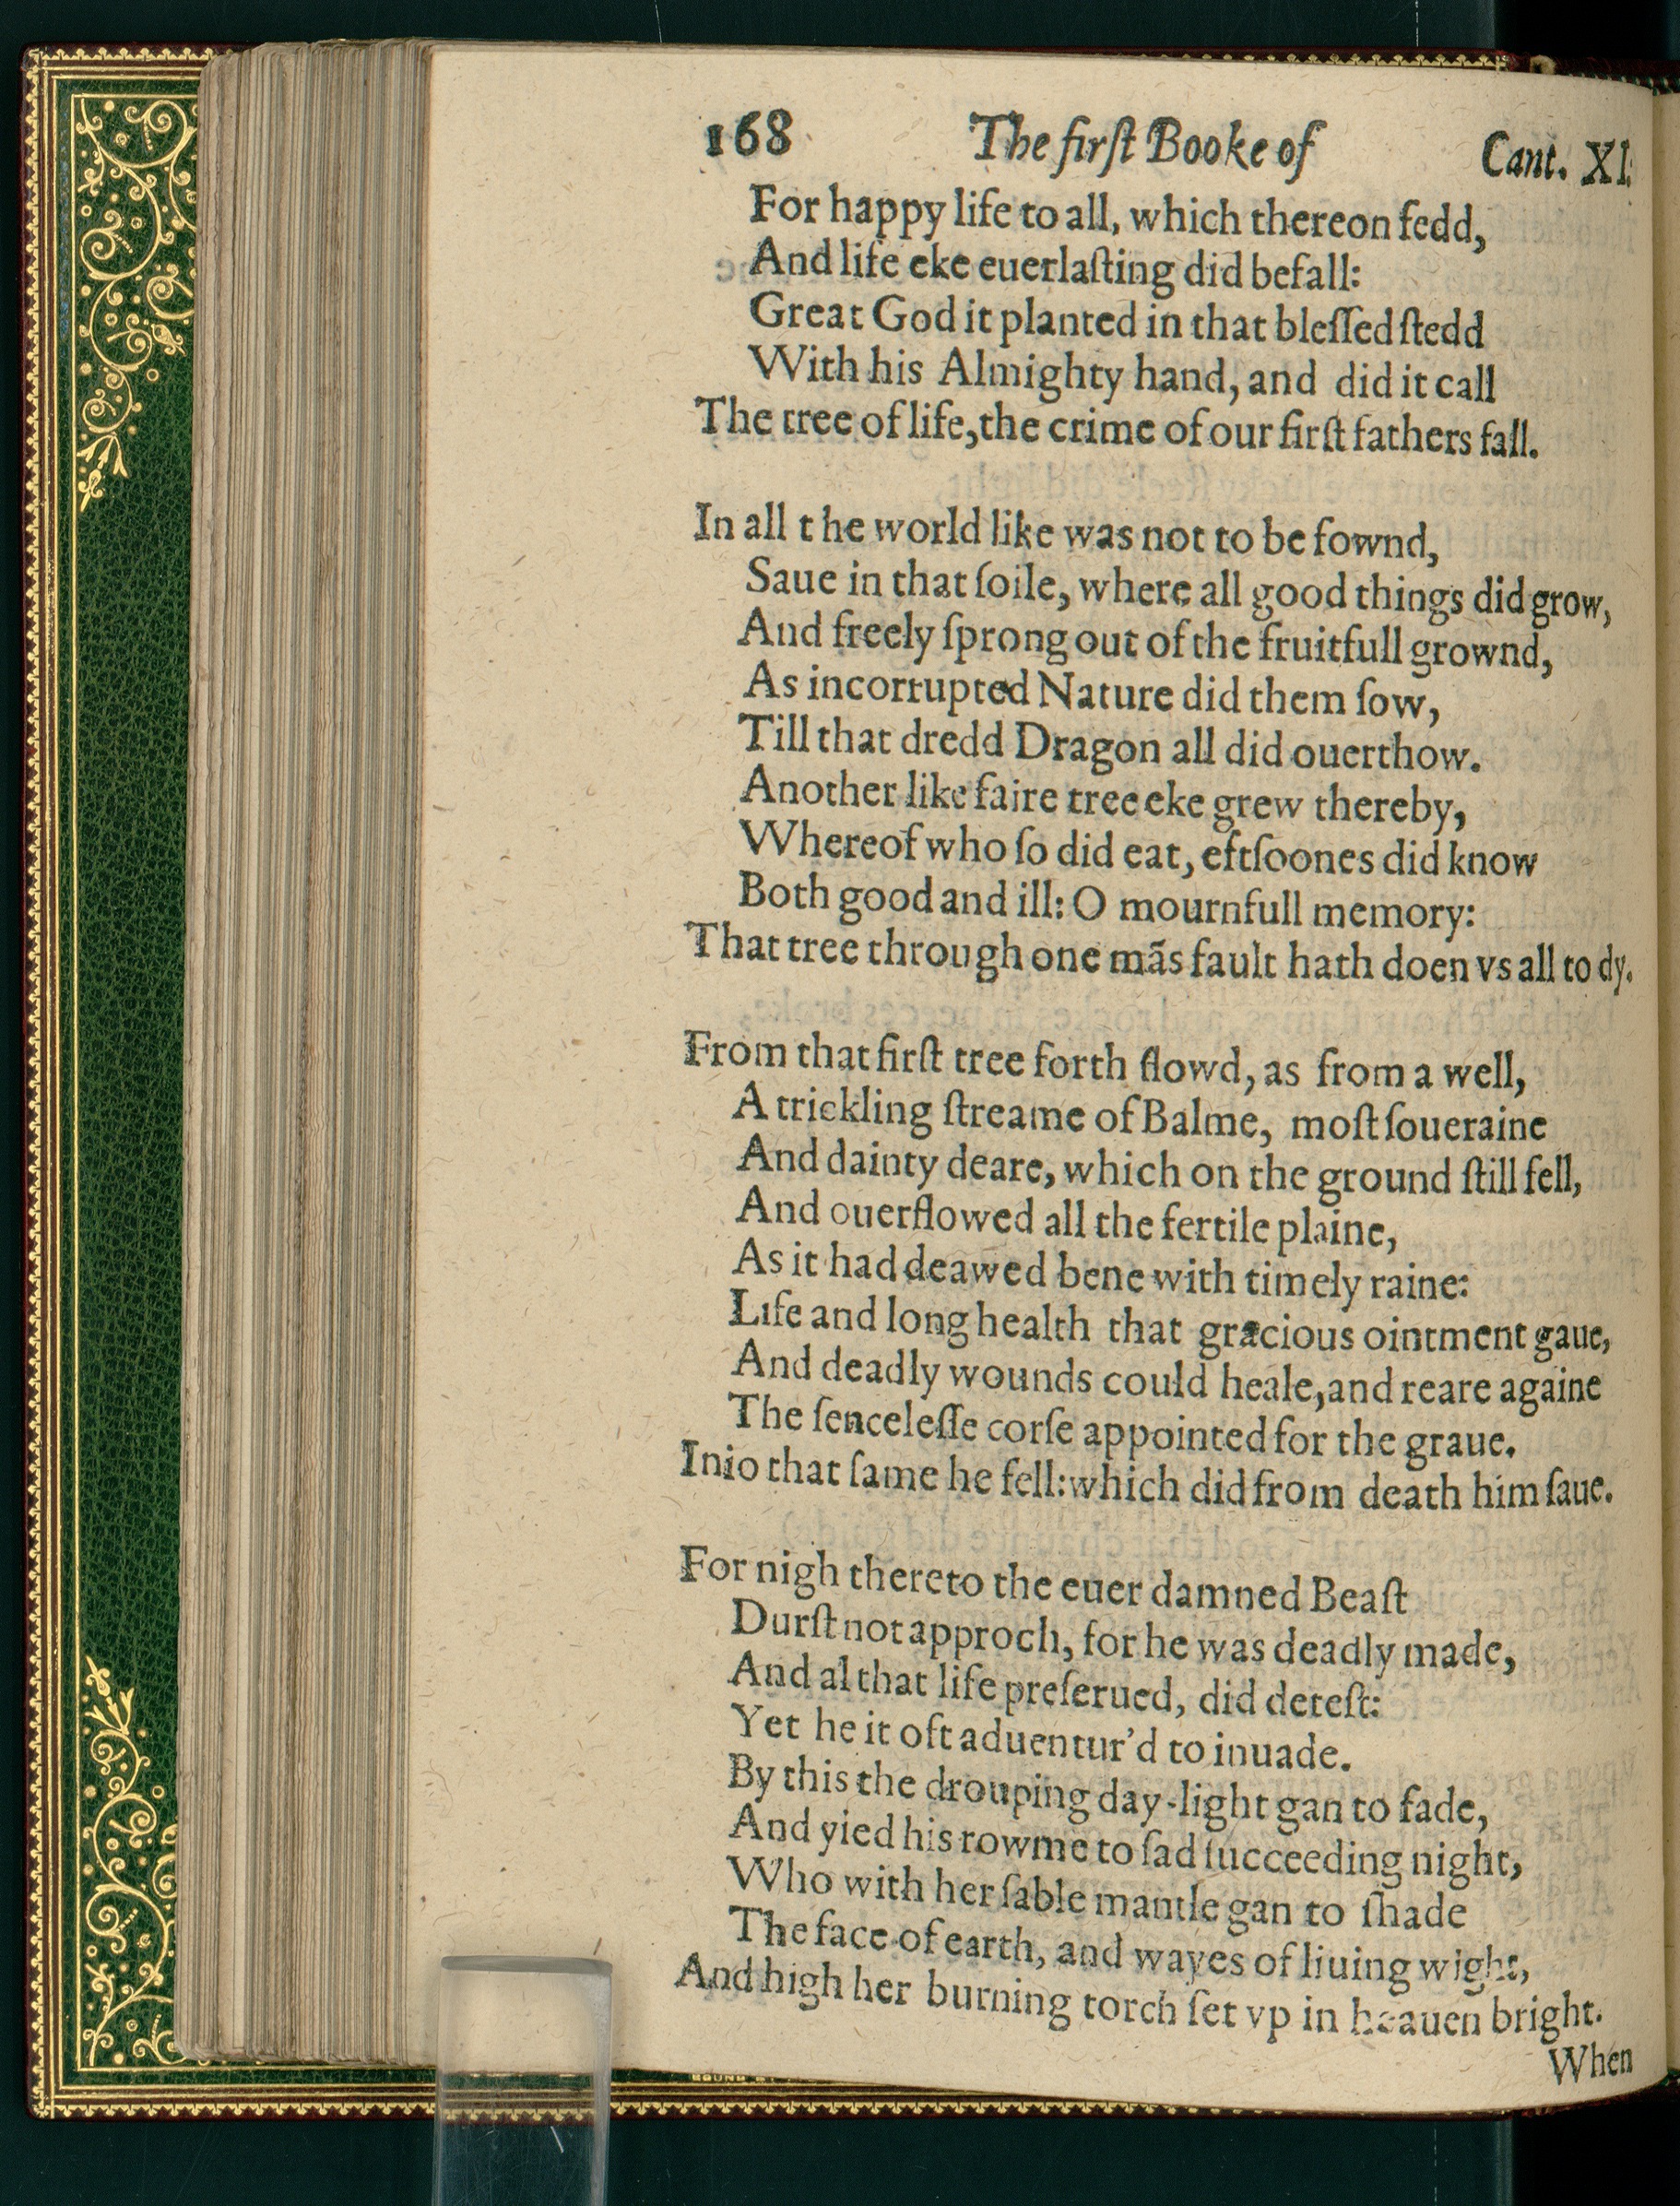 168 The firſt Booke of Cant. XI.
For happy life to all, which thereon fedd,
And life eke euerlaſting did befall:
Great God it planted in that bleſſed ſtedd
With his Almighty hand, and did it call
The tree of life, the crime of our firſt fathers fall.
In all t he world like was not to be fownd,
Saue in that ſoile, where all good things did grow,
And freely ſprong out of the fruitfull grownd,
As incorrupted Nature did them ſow,
Till that dredd Dragon all did ouerthow.
Another like faire tree eke grew thereby,
Whereof who ſo did eat, eftſoones did know
Both good and ill: O mournfull memory:
That tree through one mãs fault hath doen vs all to dy.
From that firſt tree forth flowd, as from a well,
A trickling ſtreame of Balme, moſt ſoueraine
And dainty deare, which on the ground ſtill fell,
And ouerflowed all the fertile plaine,
As it had deawed bene with timely raine:
Life and long health that gracious ointment gaue,
And deadly wounds could heale, and reare againe
The ſenceleſſe corſe appointed for the graue.
Inio that ſame he fell: which did from death him ſaue.
For nigh thereto the euer damned Beaſt
Durſt not approch, for he was deadly made,
And al that life preſerued, did deteſt:
Yet he it oft aduentur'd to inuade.
By this the drouping day-light gan to fade,
And yied his rowme to ſad ſucceeding night,
Who with her ſable mantle gan to ſhade
The face of earth, and wayes of liuing wight,
And high her burning torch ſet vp in heauen bright.
When